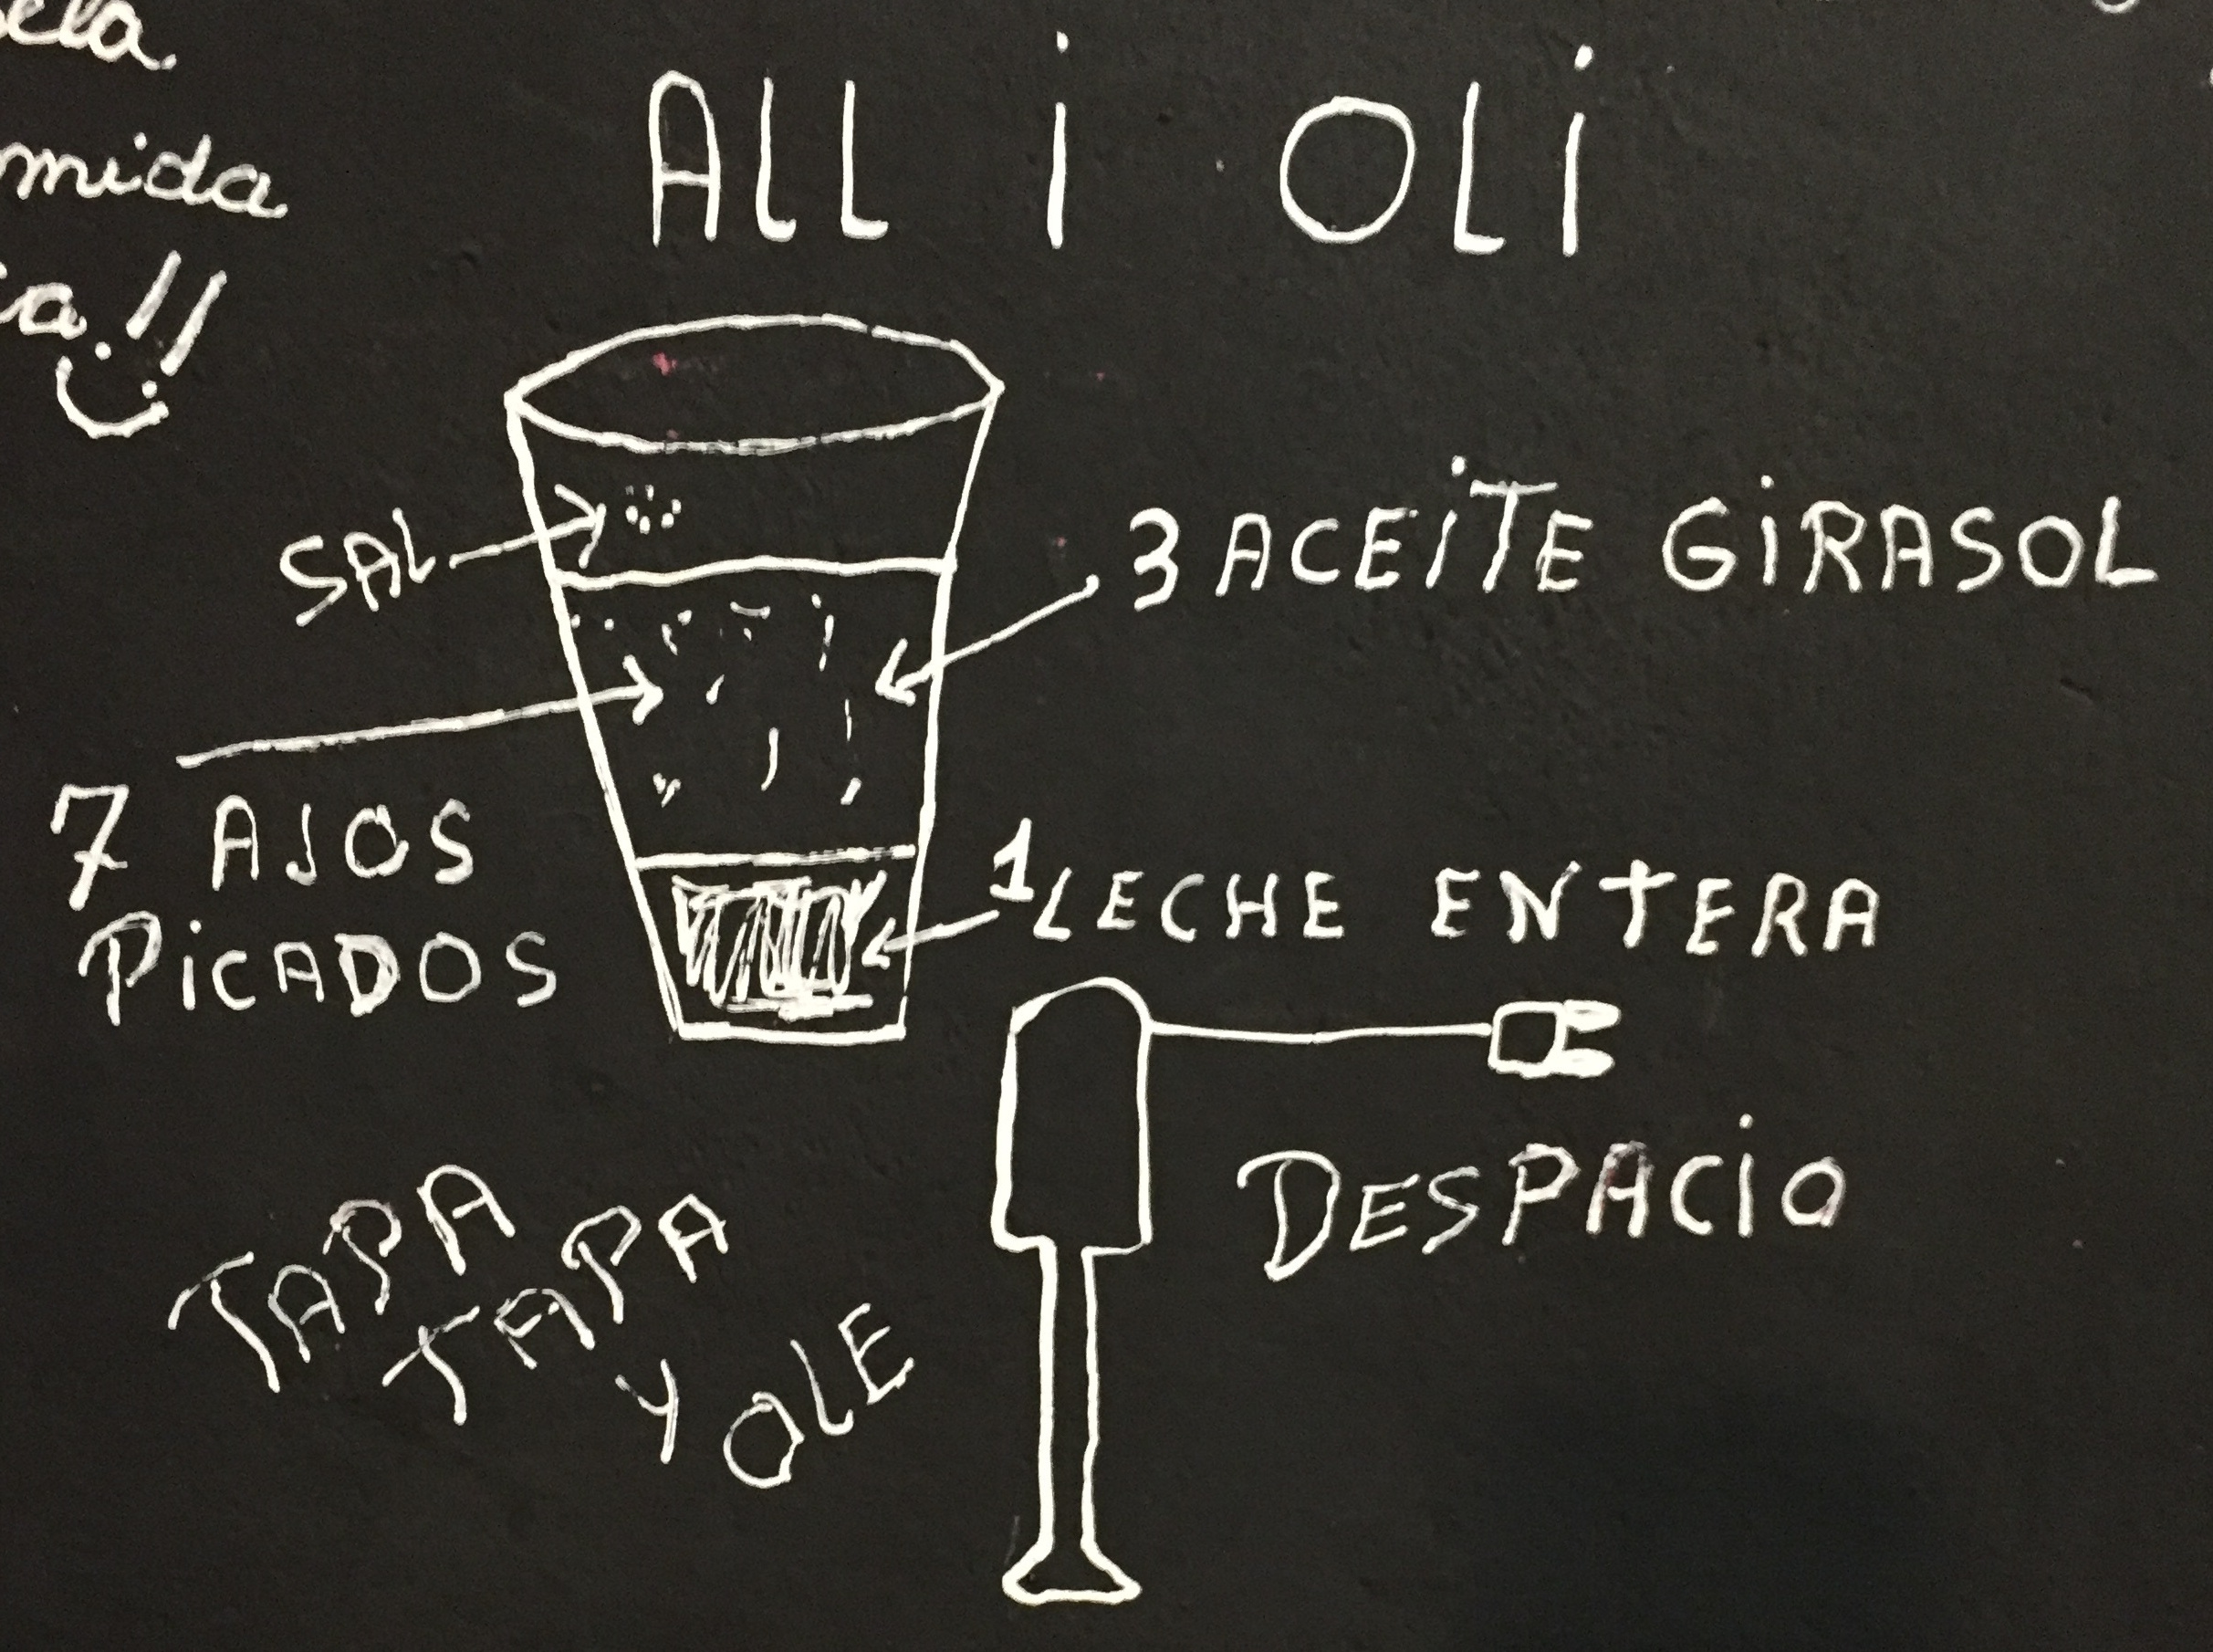 mida
ALL i OLi
SAL
3 ACEiTE GiRASOL
7 AJOS
PiCADOS
1 LECHE ENTERA
DESPACiO
TAPA
TAPA
Y OLE